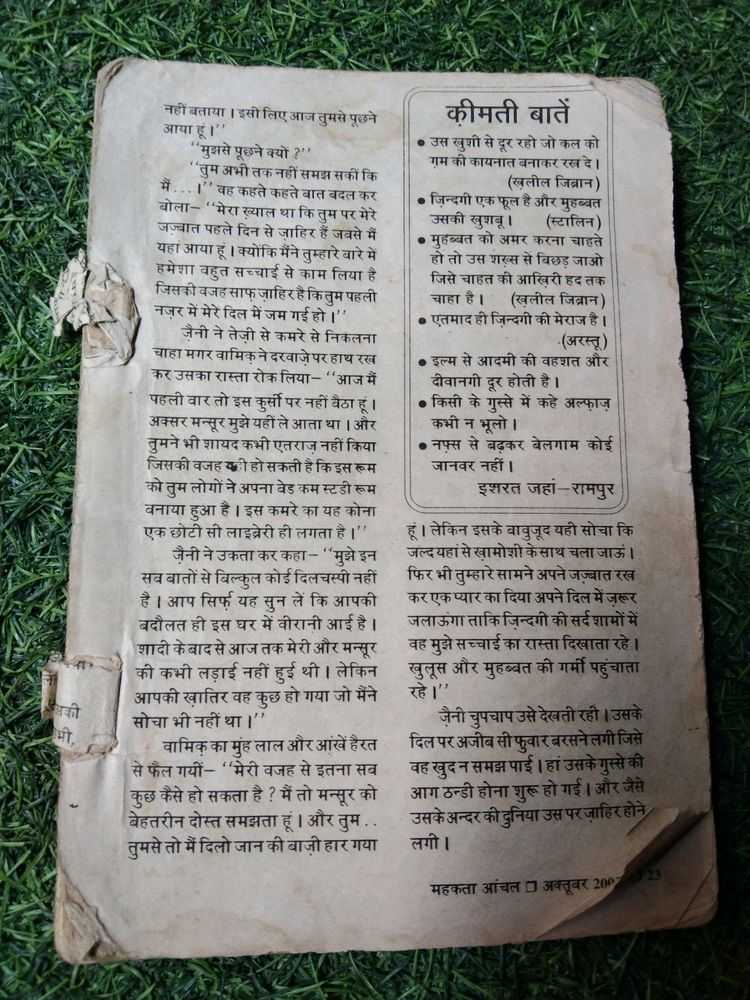 नहीं बताया । इसी लिए आज तुमसे पूछने
आया हूं ।’’
‘‘मुझसे पूछने क्यों ?’’
‘‘तुम अभी तक नहीं समझ सकीं कि
मैं ... ।’’ वह कहते कहते बात बदल कर
बोला– ‘‘मेरा ख़्याल था कि तुम पर मेरे
जज़्बात पहले दिन से ज़ाहिर हैं जबसे मैं
यहां आया हूं । क्योंकि मैंने तुम्हारे बारे में
हमेशा बहुत सच्चाई से काम लिया है
जिसकी वजह साफ़ ज़ाहिर है कि तुम पहली
नज़र में मेरे दिल में जम गई हो ।’’
जै़नी ने तेज़ी से कमरे से निकलना
चाहा मगर वामिक़ ने दरवाज़े पर हाथ रख
कर उसका रास्ता रोक लिया– ‘‘आज मैं
पहली वार तो इस कुर्सी पर नहीं बैठा हूं ।
अक्सर मन्सूर मुझे यहीं ले आता था । और
तुमने भी शायद कभी एतराज़ नहीं किया
जिसकी वजह यही हो सकती है कि इस रूम
को तुम लोगों ने अपना बेड कम स्टडी रूम
बनाया हुआ है । इस कमरे का यह कोना
एक छोटी सी लाइब्रेरी ही लगता है ।’’
जै़नी ने उकता कर कहा– ‘‘मुझे इन
सब बातों से बिल्कुल कोई दिलचस्पी नहीं
है । आप सिर्फ़ यह सुन लें कि आपकी
बदौलत ही इस घर में वीरानी आई है ।
शादी के बाद से आज तक मेरी और मन्सूर
की कभी लड़ाई नहीं हुई थी । लेकिन
आपकी ख़ातिर वह कुछ हो गया जो मैंने
सोचा भी नहीं था ।’’
वामिक़ का मुंह लाल और आंखें हैरत
से फैल गयीं– ‘‘मेरी वजह से इतना सब
कुछ कैसे हो सकता है ? मैं तो मन्सूर को
बेहतरीन दोस्त समझता हूं । और तुम . .
तुमसे तो मैं दिलो जान की बाज़ी हार गया
क़ीमती बातें
● उस खुशी से दूर रहो जो कल को
ग़म की कायनात बनाकर रख दे ।
(ख़लील जिब्रान)
● ज़िन्दगी एक फूल है और मुहब्बत
उसकी खुशबू । (स्टालिन)
● मुहब्बत को अमर करना चाहते
हो तो उस शख़्स से बिछड़ जाओ
जिसे चाहत की आख़िरी हद तक
चाहा है । (ख़लील जिब्रान)
● एतमाद ही ज़िन्दगी की मेराज है ।
(अरस्तू)
● इल्म से आदमी की वहशत और
दीवानगी दूर होती है ।
● किसी के गुस्से में कहे अल्फ़ाज़
कभी न भूलो ।
● नफ़्स से बढ़कर बेलगाम कोई
जानवर नहीं ।
इशरत जहां–रामपुर
हूं । लेकिन इसके बावुजूद यही सोचा कि
जल्द यहां से ख़ामोशी के साथ चला जाऊं ।
फिर भी तुम्हारे सामने अपने जज़्बात रख
कर एक प्यार का दिया अपने दिल में ज़रूर
जलाऊंगा ताकि ज़िन्दगी की सर्द शामों में
वह मुझे सच्चाई का रास्ता दिखाता रहे ।
खुलूस और मुहब्बत की गर्मी पहुंचाता
रहे ।’’
जै़नी चुपचाप उसे देखती रही । उसके
दिल पर अजीब सी फुवार बरसने लगी जिसे
वह खुद न समझ पाई । हां उसके गुस्से की
आग ठन्डी होना शुरू हो गई । और जैसे
उसके अन्दर की दुनिया उस पर ज़ाहिर होने
लगी ।
महकता आंचल ❏ अक्तूबर 200 ❏ 23